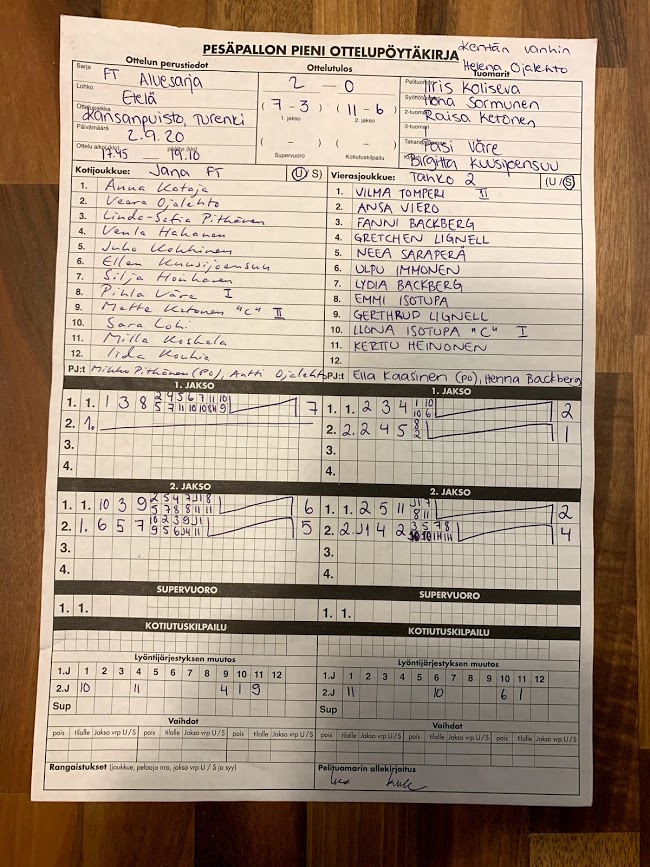 PESÄPALLON PIENI OTTELUPÖYTÄKIRJA
Kentän vanhin
Helena Ojalehto
Ottelun perustiedot
Ottelutulos
Tuomarit
Sarja FT Aluesarja
2 – 0
Pelituomari Iiris Koliseva
Lohko Etelä
Syöttötuomari Ilona Sormunen
Ottelupaikka Kansanpuisto, Turenki
( 7 – 3 ) ( 11 – 6 )
1. jakso 2. jakso
2-tuomari Raisa Ketonen
Päivämäärä 2.9.20
3-tuomari
( – ) ( – )
Takarajatuomari Pasi Väre
Ottelu alkoi (klo) päättyi (klo)
17.45 – 19.10
Supervuoro Kotiutuskilpailu
Kirjuri Birgitta Kuusijoensuu
Kotijoukkue: Jana FT (U/S)
Vierasjoukkue: Tahko 2 (U/S)
1. Anna Kataja
1. VILMA TOMPERI II
2. Veera Ojalehto
2. ANSA VIERO
3. Linda-Sofia Pitkänen
3. FANNI BACKBERG
4. Venla Hakanen
4. GRETCHEN LIGNELL
5. Juha Kokkinen
5. NEEA SARAPERÄ
6. Ellen Kuusijoensuu
6. ULPU IMMONEN
7. Silja Honkanen
7. LYDIA BACKBERG
8. Pihla Väre I
8. EMMI ISOTUPA
9. Mette Ketonen "C" II
9. GERTHRUD LIGNELL
10. Sara Lohi
10. ILONA ISOTUPA "C" I
11. Milla Koskela
11. KERTTU HEINONEN
12. Iida Kouhia
12.
PJ:t Mikko Pitkänen (PO), Antti Ojalehto
PJ:t Ella Kaasinen (PO), Henna Backberg
1. JAKSO
1. JAKSO
1. 1. 1 3 8 2 4 5 6 7 11 10 7
5 7 11 10 10 8 11 9
1. 1. 2 3 4 1 10 2
10 6
2. 1.
2. 2. 2 4 5 8 1
2
3.
3.
4.
4.
2. JAKSO
2. JAKSO
1. 1. 10 3 9 2 5 4 7 J1 8 6
5 7 8 8 11 11
1. 1. 2 5 11 J1 7 2
8 11
2. 1. 6 5 7 10 2 3 9 J1 5
9 5 6 J4 11
2. 2. J1 4 2 3 5 7 8 4
3.
3.
4.
4.
SUPERVUORO
SUPERVUORO
1. 1.
1. 1.
KOTIUTUSKILPAILU
KOTIUTUSKILPAILU
Lyöntijärjestyksen muutos
Lyöntijärjestyksen muutos
1.J 1 2 3 4 5 6 7 8 9 10 11 12
1.J 1 2 3 4 5 6 7 8 9 10 11 12
2.J 10 11 4 1 9
2.J 11 10 6 1
Sup
Sup
Vaihdot
Vaihdot
pois tilalle Jakso vrp U/S pois tilalle Jakso vrp U/S pois tilalle Jakso vrp U/S
pois tilalle Jakso vrp U/S pois tilalle Jakso vrp U/S pois tilalle Jakso vrp U/S
Rangaistukset (joukkue, pelaaja nro, jakso vrp U / S ja syy)
Pelituomarin allekirjoitus